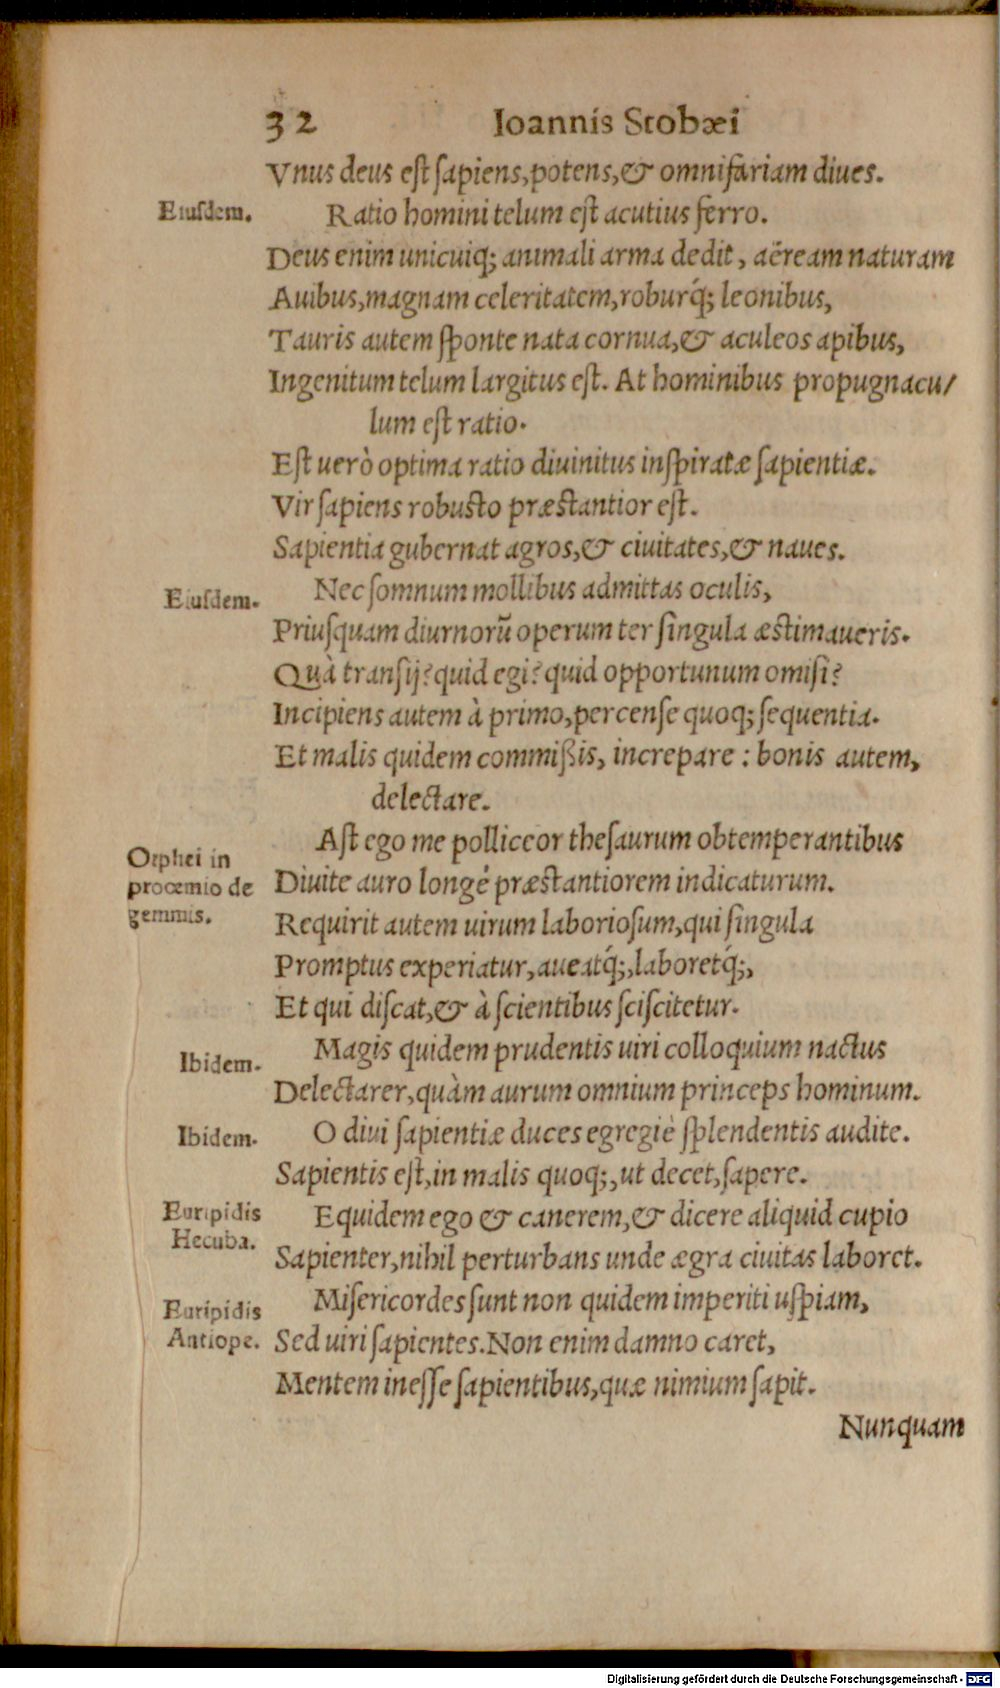 32 Ioannis Stobæi
Vnus deus est sapiens, potens, & omnifariam diues.
Eiusdem. Ratio homini telum est acutius ferro.
Deus enim unicuiq; animali arma dedit, aëream naturam
Auibus, magnam celeritatem, roburq́; leonibus,
Tauris autem sponte nata cornua, & aculeos apibus,
Ingenitum telum largitus est. At hominibus propugnacu/
lum est ratio.
Est uerò optima ratio diuinitus inspiratæ sapientiæ.
Vir sapiens robusto præstantior est.
Sapientia gubernat agros, & ciuitates, & naues.
Eiusdem. Nec somnum mollibus admittas oculis,
Priusquam diurnorũ operum ter singula æstimaueris.
Quà transij? quid egi? quid opportunum omisi?
Incipiens autem à primo, percense quoq; sequentia.
Et malis quidem commißis, increpare : bonis autem,
delectare.
Orphei in
procemio de
gemmis.
Ast ego me polliceor thesaurum obtemperantibus
Diuite auro longè præstantiorem indicaturum.
Requirit autem uirum laboriosum, qui singula
Promptus experiatur, aueatq́;, laboretq́;,
Et qui discat, & à scientibus sciscitetur.
Ibidem. Magis quidem prudentis uiri colloquium nactus
Delectarer, quàm aurum omnium princeps hominum.
Ibidem. O diui sapientiæ duces egregiè splendentis audite.
Sapientis est, in malis quoq;, ut decet, sapere.
Euripidis
Hecuba.
Equidem ego & canerem, & dicere aliquid cupio
Sapienter, nihil perturbans unde ægra ciuitas laboret.
Euripidis
Antiope.
Misericordes sunt non quidem imperiti uspiam,
Sed uiri sapientes. Non enim damno caret,
Mentem inesse sapientibus, quæ nimium sapit.
Nunquam
Digitalisierung gefördert durch die Deutsche Forschungsgemeinschaft - DFG